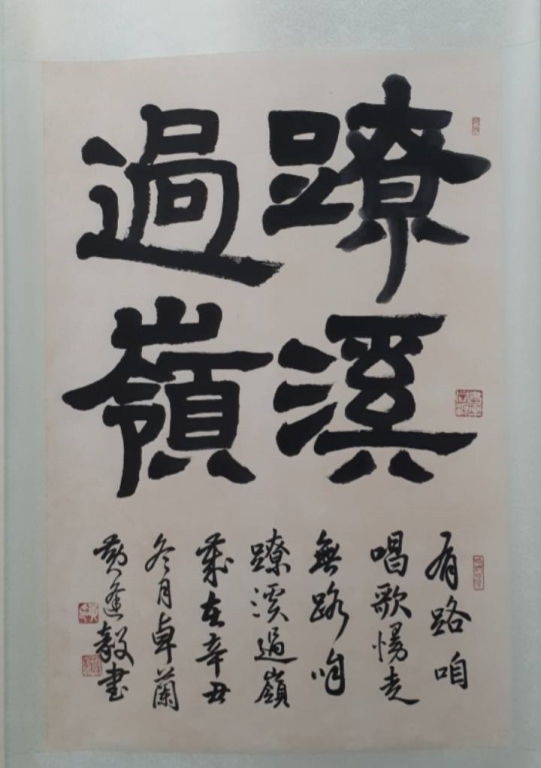 蹽溪
過嶺
有路咱
唱歌慢走
無路咱
蹽溪過嶺
歲在辛丑
冬月卓蘭
黃逢毅書